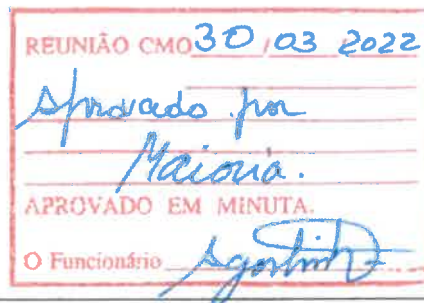 REUNIÃO CMO 30 / 03 2022
Aprovado por
Maioria.
APROVADO EM MINUTA.
O Funcionário